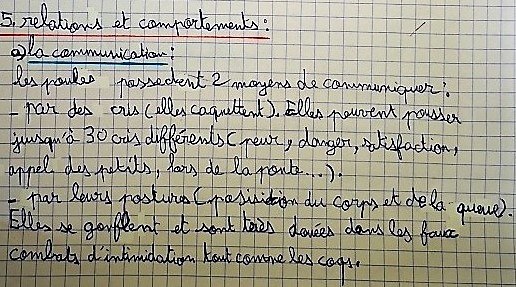 5. relations et comportements :
a) la communication :
les poules possedent 2 moyens de communiquer :
- par des cris (elles caquettent). Elles peuvent pousser
jusqu'à 30 cris différents (peur, danger, satisfaction,
appel des petits, lors de la ponte...).
- par leurs postures (position du corps et de la queue).
Elles se gonflent et sont très douées dans les faux
combats d'intimidation tout comme les coqs.